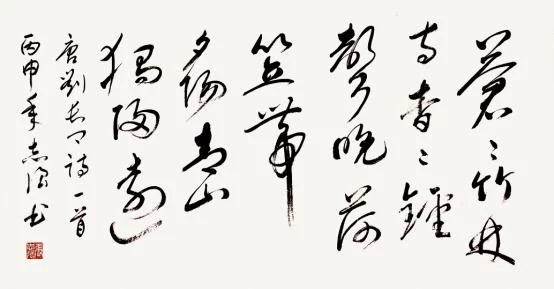 蒼〻竹林
寺杳〻鐘
聲晚荷
笠帶
夕陽青山
獨歸遠
唐劉長卿詩一首
丙申年志书